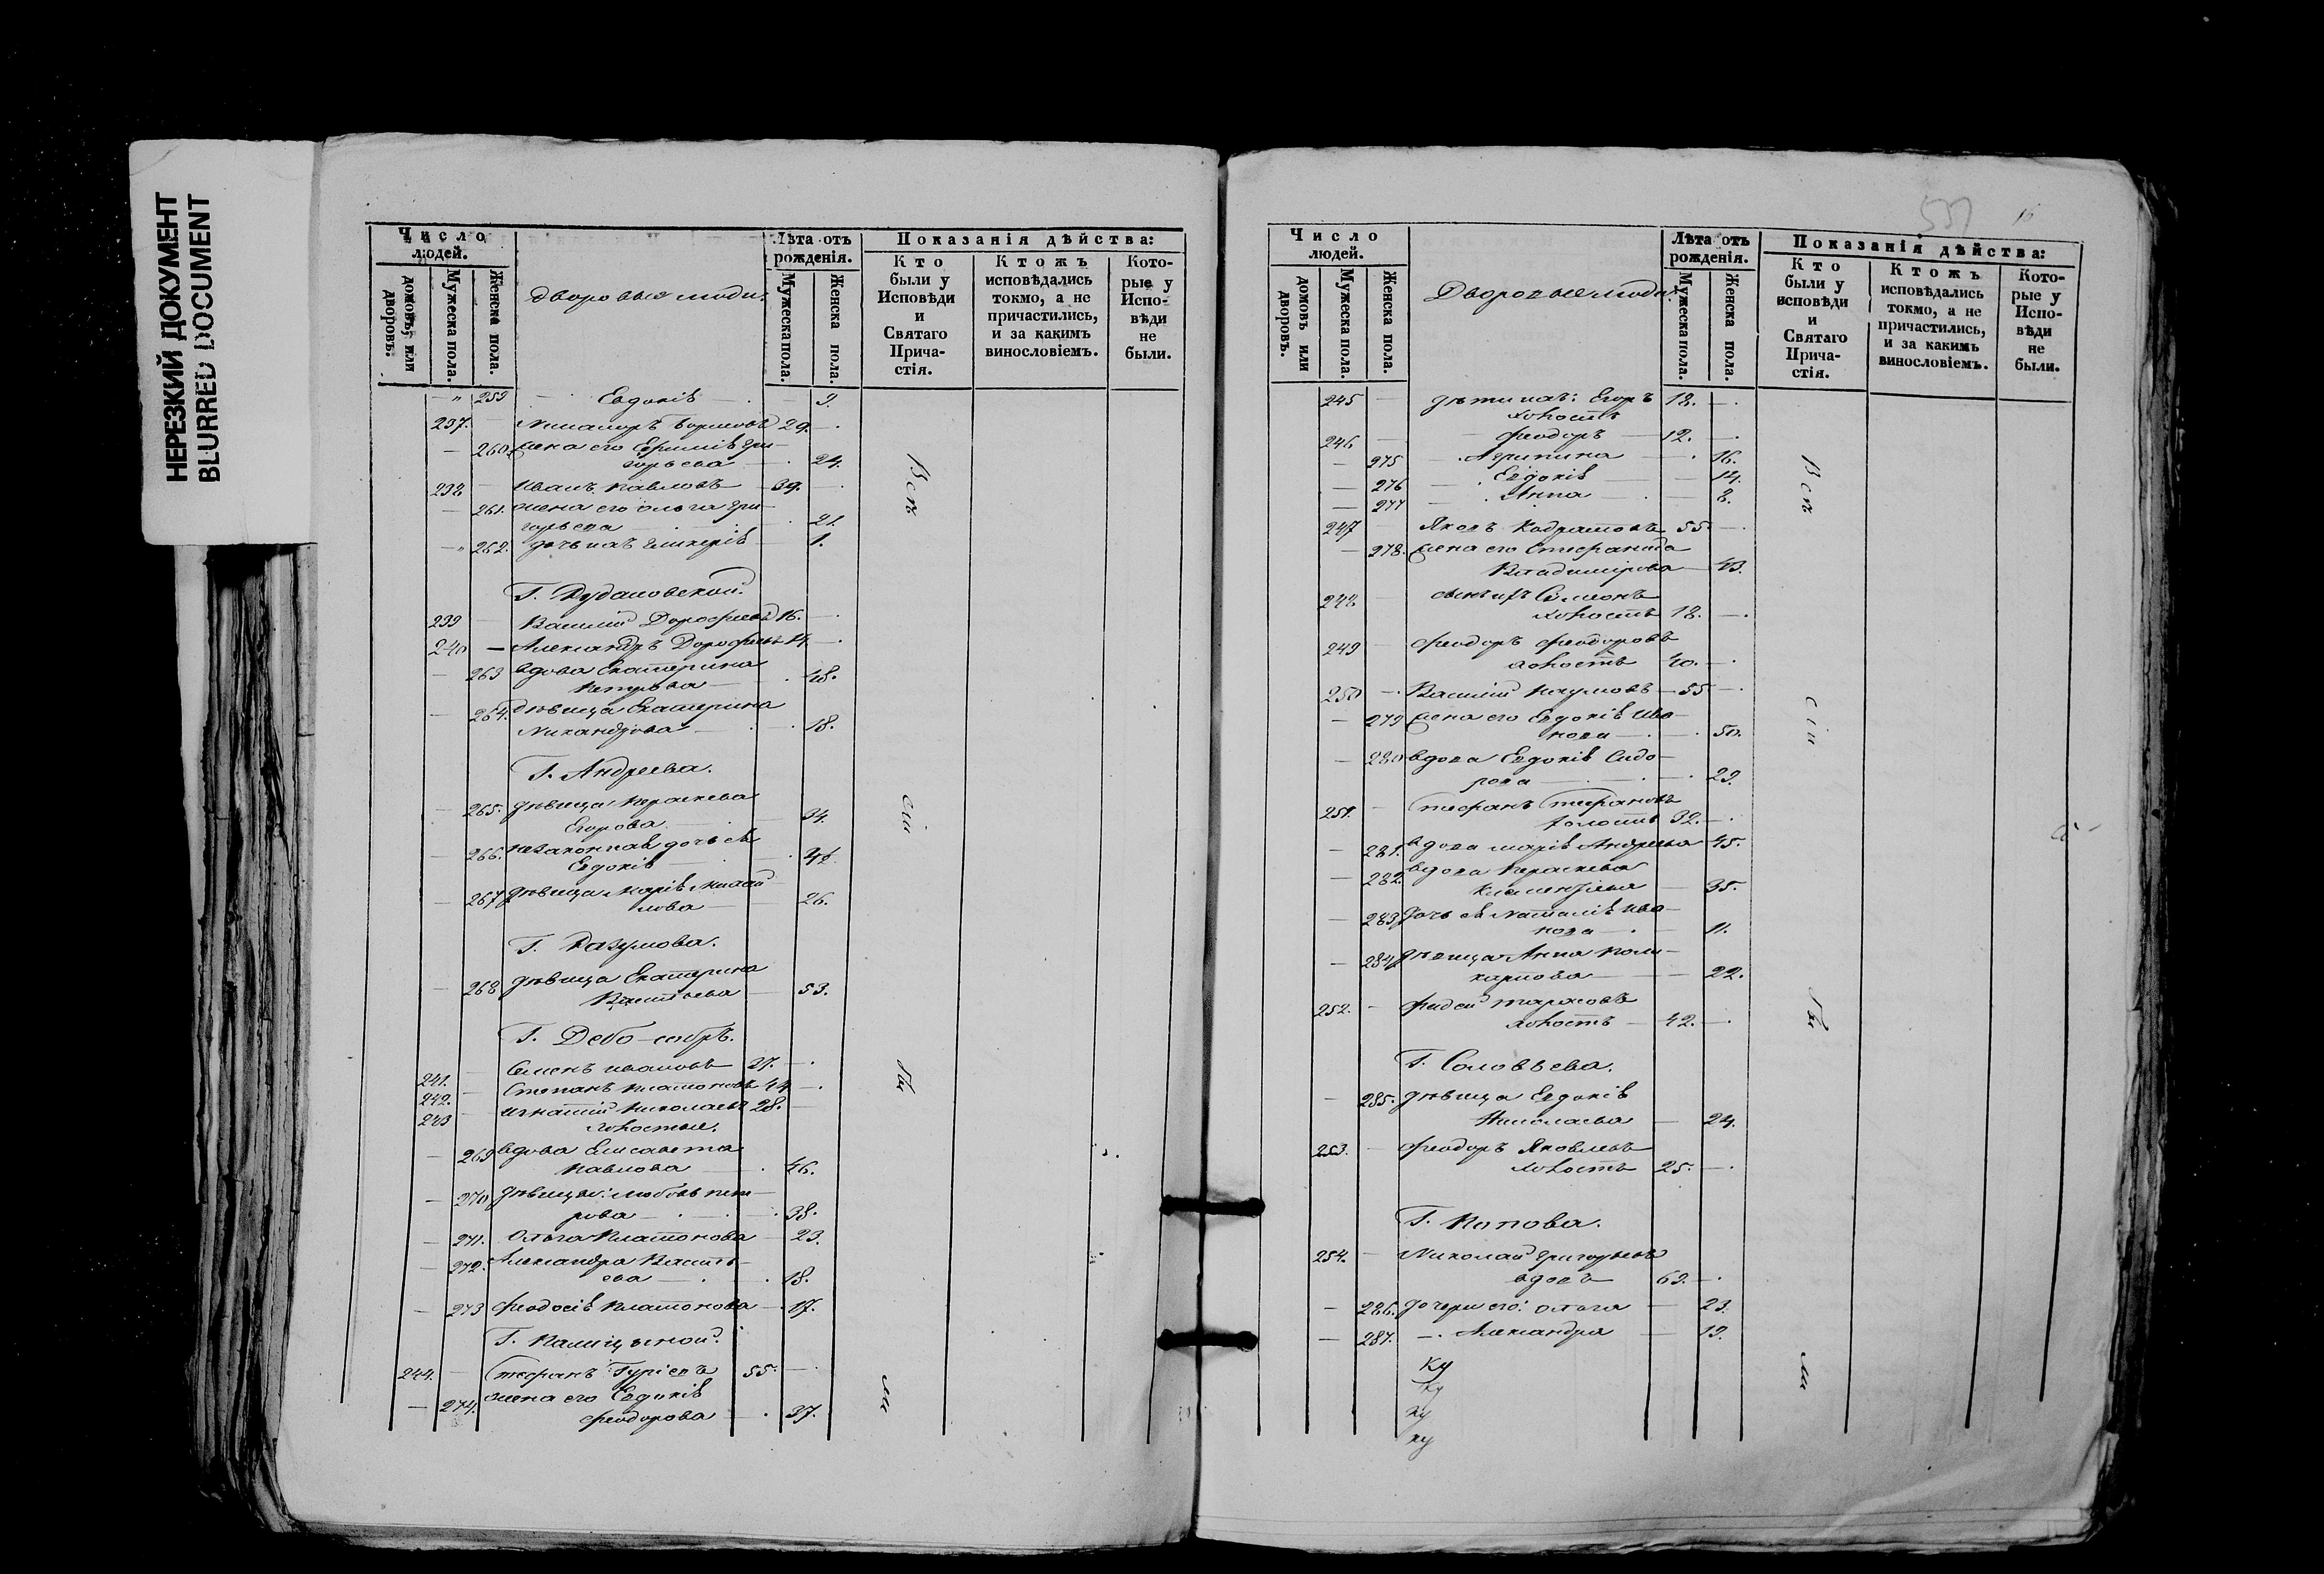 НЕРЕЗКИЙ ДОКУМЕНТ
BLURRED DOCUMENT
Число людей.
домовъ, или дворовъ.
Мужеска пола.
Женска пола.
Дворовыя люди.
Лѣта отъ рожденія.
Мужеска пола.
Женска пола.
Показанія дѣйства:
Кто были у Исповѣди и Святаго Прича-стія.
Ктожъ исповѣдались токмо, а не причастились, и за какимъ винословіемъ.
Кото-рые у Испо-вѣди не были.
259 Евдокія 9.
237. Никаноръ Борисовъ 29.
260. жена его Ефимія Гри-
горьева 24.
238 Иванъ Павловъ 39.
261. жена его Ольга Гри-
горьева 21.
262. дочь ихъ Гликерія 1.
Г.
239 Василій Дорофеевъ 16.
240 Александръ Дорофеевъ 14.
263 вдова Екатерина
Петрова 48.
264. дѣвица Екатерина
Никандрова 18.
Г. Андреева.
265. дѣвица Параскева
Егорова 34.
266. незаконная дочь ея
Евдокія
267 дѣвица Марія Михай
лова 26.
Г. Разумова.
268 дѣвица Екатерина
Васильева 53.
Г.
241. Семенъ Ивановъ 37.
242. Степанъ Платоновъ 44
243 Игнатій Николаевъ 28.
холостые.
269 вдова Елисавета
Павлова 46.
270 дѣвицы: Любовь Пет-
рова 38.
271. Ольга Платонова 23.
272. Александра Василь-
ева 18.
273 Феодосія Платонова 17.
Г.
244. Стефанъ Гурьевъ 55.
274. жена его Евдокія
Феодорова 37.
Всѣ
сіи
бы
ли
537
16
Число людей.
домовъ или дворовъ.
Мужеска пола.
Женска пола.
Дворовые люди.
Лѣта отъ рожденія.
Мужеска пола.
Женска пола.
Показанія дѣйства:
Кто были у исповѣди и Святаго Прича-стія.
Ктожъ исповѣдались токмо, а не причастились, и за какимъ винословіемъ.
Кото-рые у Испо-вѣди не были.
245 дѣти ихъ: Егоръ 18.
холостъ
246 Феодоръ 12.
275 Агрипина 16.
276 Евдокія 14.
277 Анна 8.
247 Яковъ Кодратовъ 55
278. жена его Стефанида
Владимірова 43.
248 сынъ ихъ Симеонъ
холостъ 18.
249 Феодоръ Феодоровъ
холостъ 40.
250 Василій Наумовъ 55
279 жена его Евдокія Ива-
нова 50.
280 вдова Евдокія Сидо-
рова 29.
251. Стефанъ Стефановъ
холостъ 32.
281. вдова Марія Андреева 45.
282. вдова Параскева
Климентьева 35.
283. дочь ея Наталія Ива-
нова 11.
284. дѣвица Анна Поли-
карпова 22.
252. Фадей Тарасовъ
холостъ 42.
Г. Соловьева.
285. дѣвица Евдокія
Николаева 24.
253. Феодоръ Яковлевъ
холостъ 25.
Г. Попова.
254. Николай Григорьевъ
вдовъ 63.
286. дочери его: Ольга 23.
287. Александра 19.
Ку
ку
ку
ку
Всѣ
сіи
бы
ли